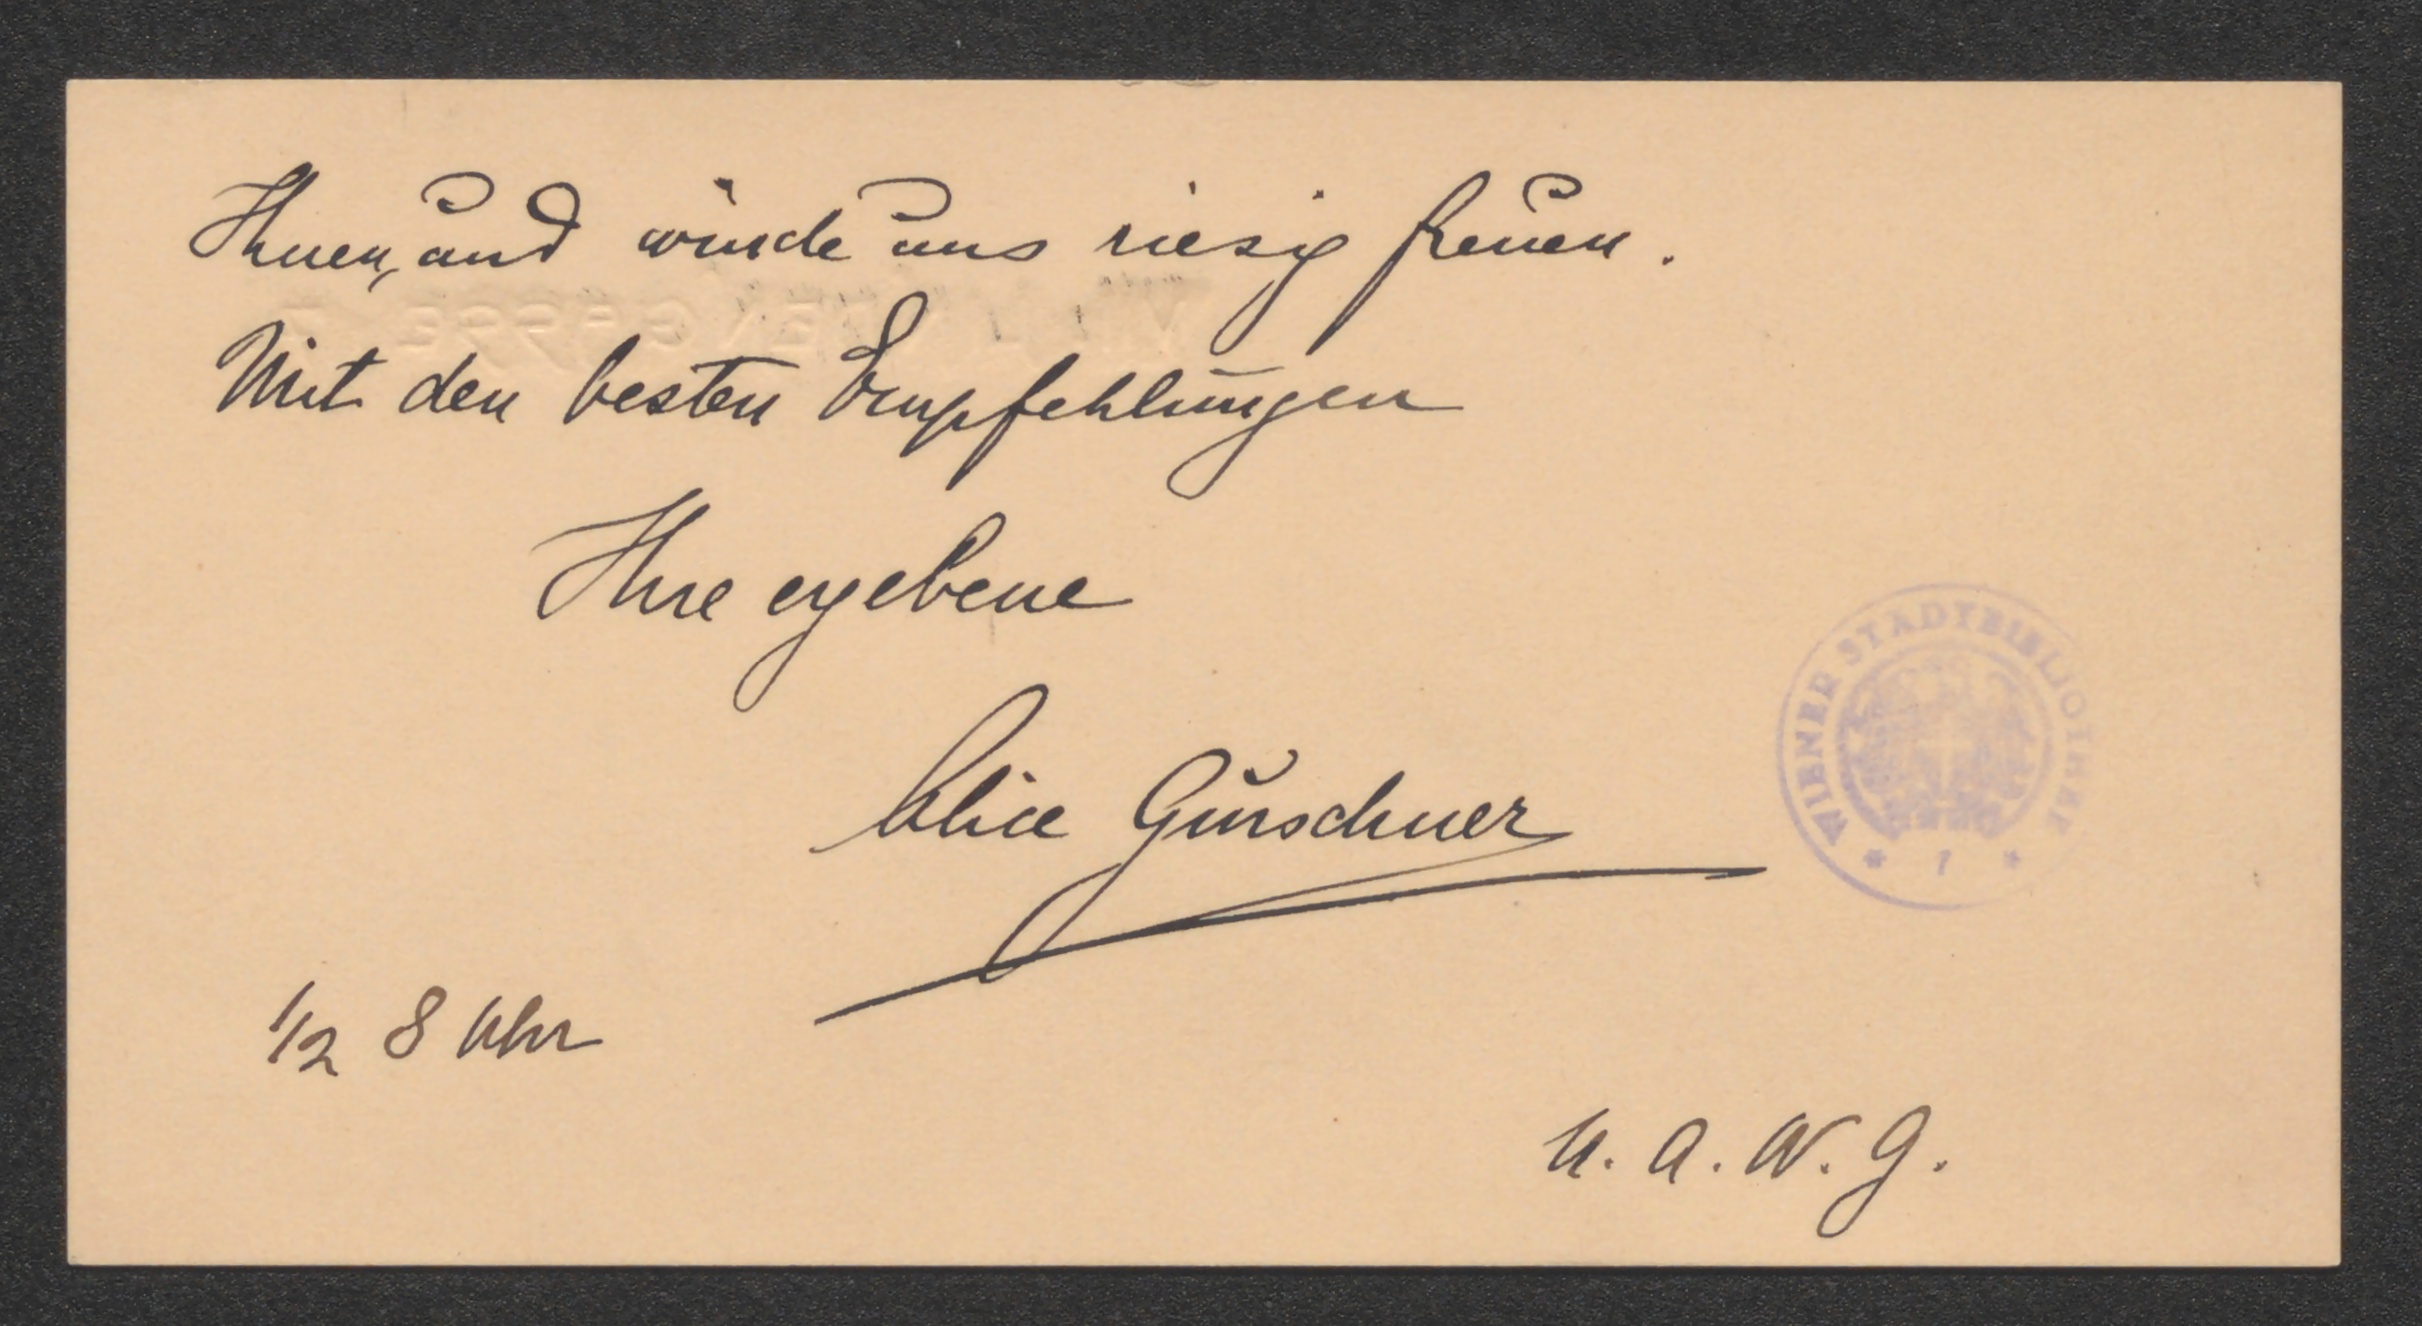 Ihnen, und würde uns riesig freuen.
Mit den besten Empfehlungen
Ihre ergebene
Alice Gurschner
WIENER STADTBIBLIOTHEK
* 7 *
1/2 8 Uhr
U. A. W. G.